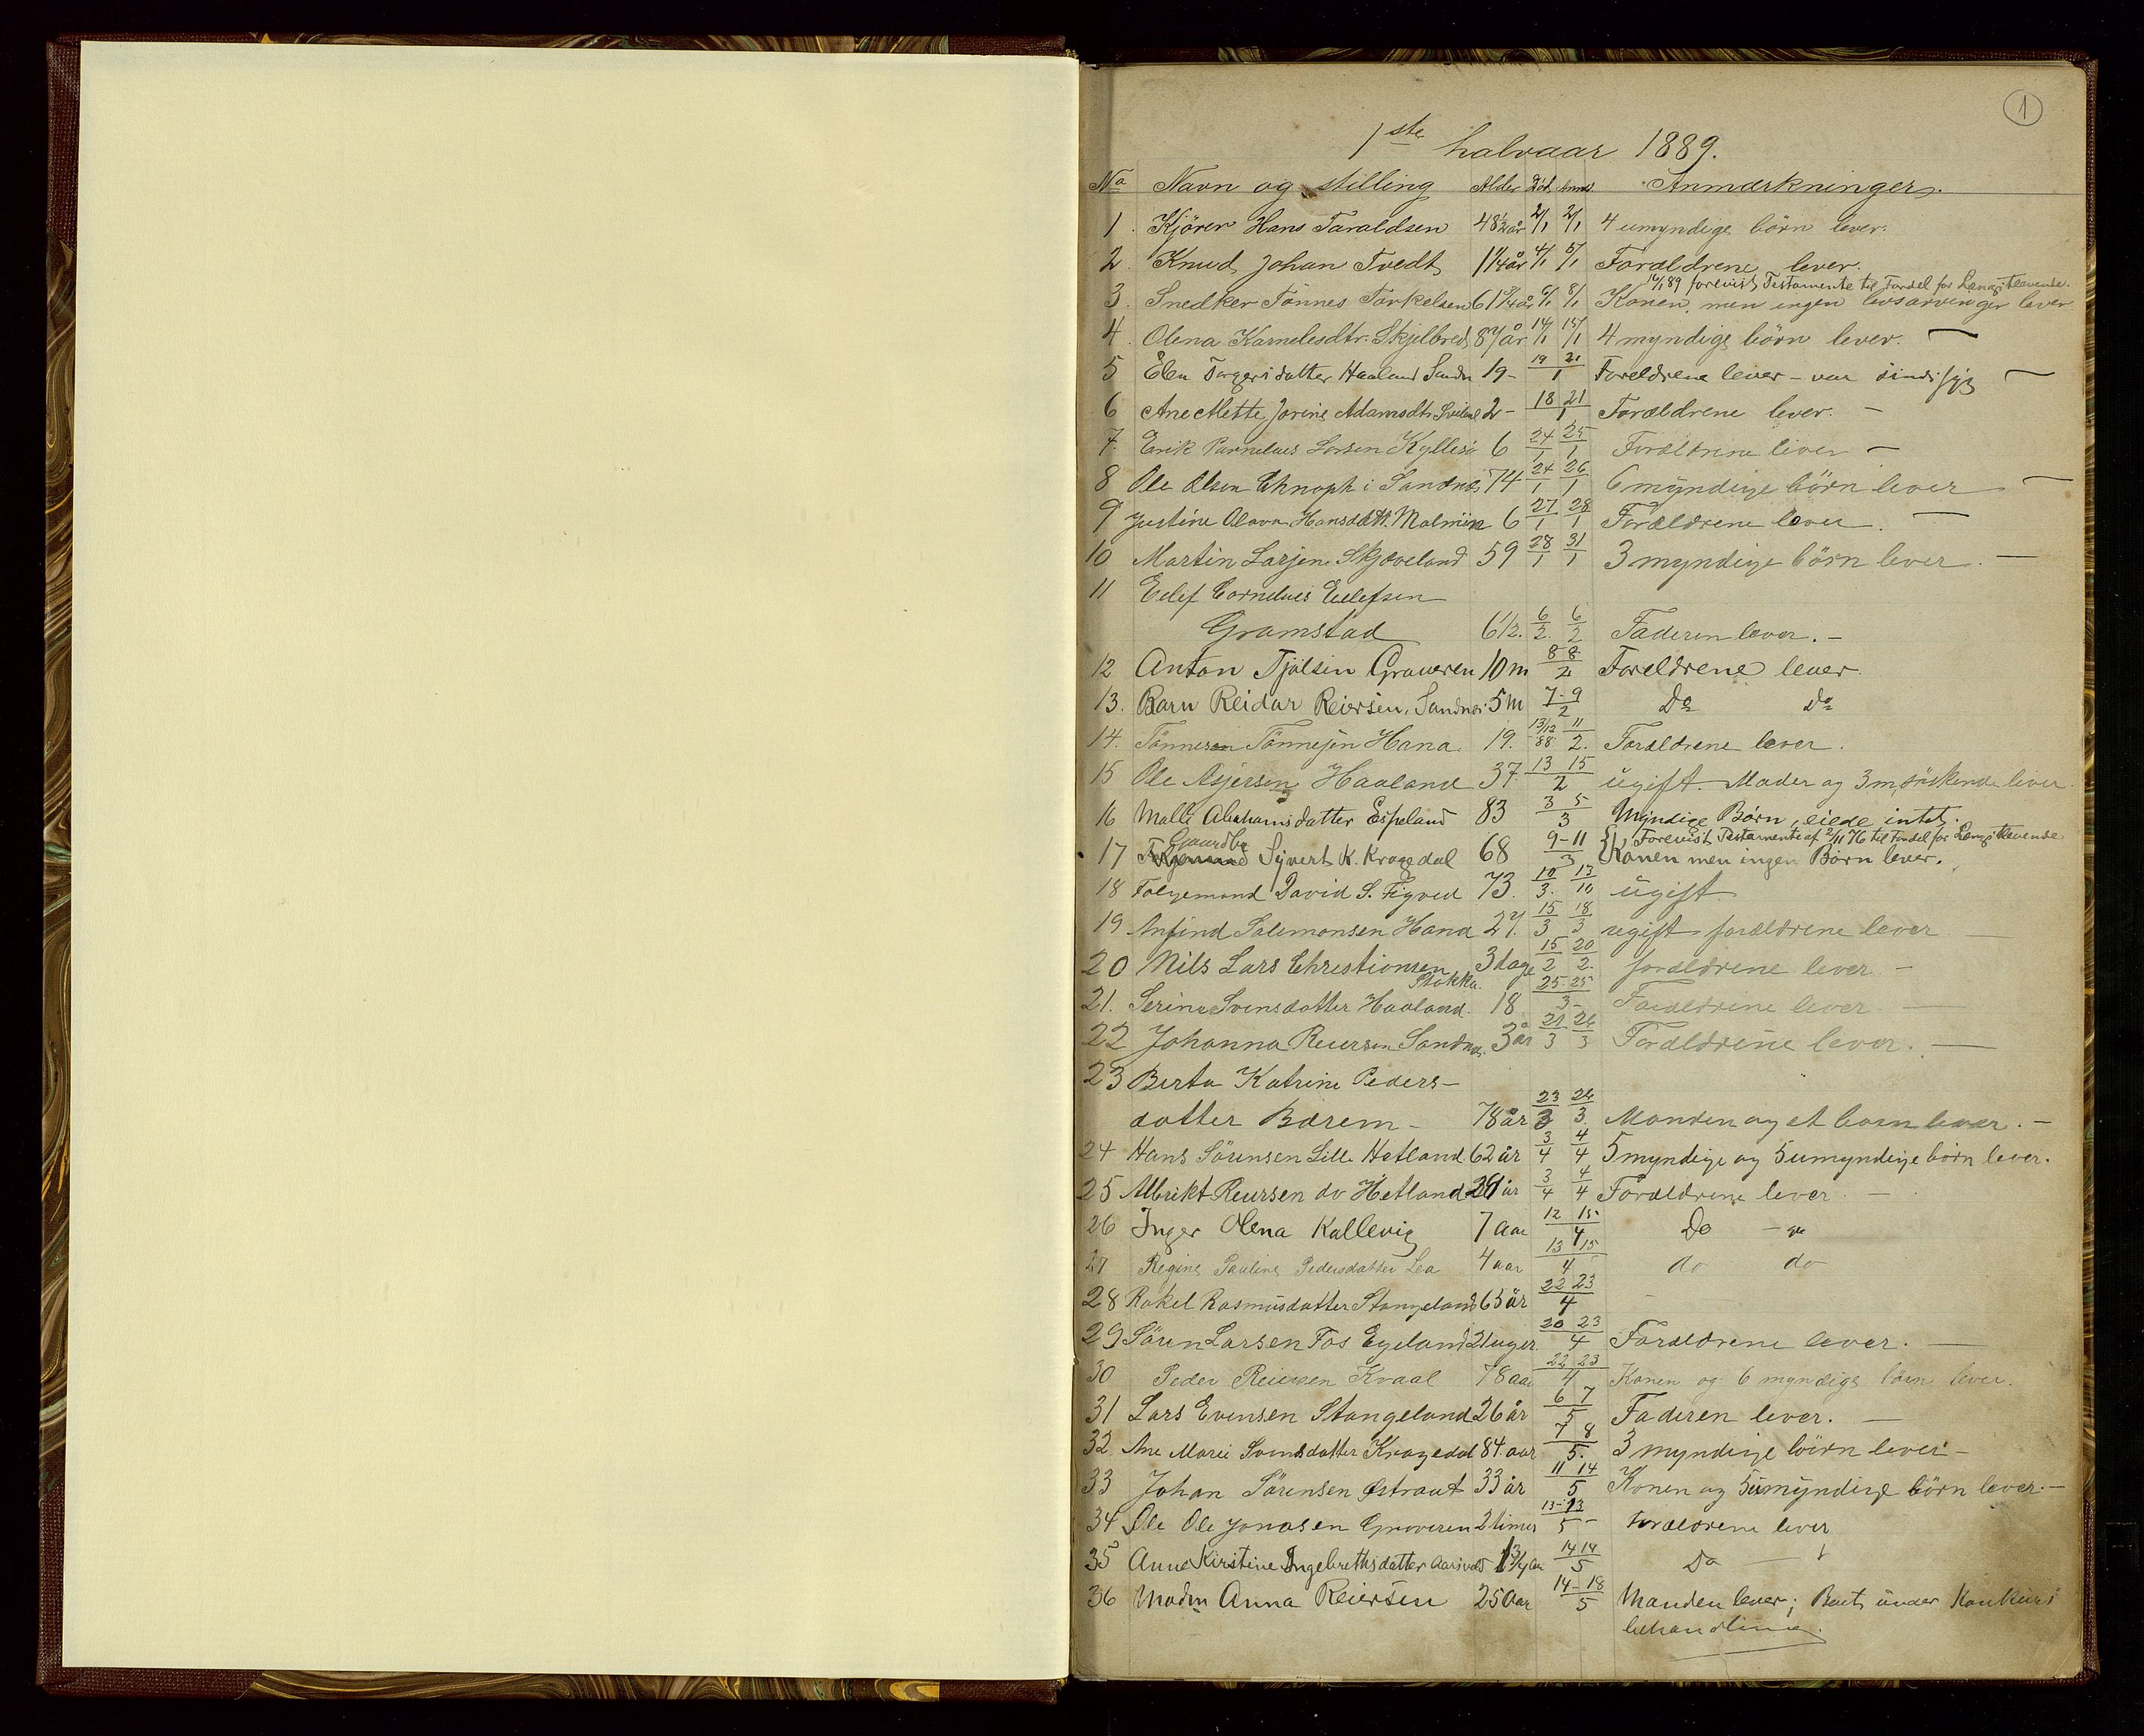 1
1ste halvaar 1889.
No Navn og stilling Alder Död Anm. Anmærkninger.
1. Kjörer Hans Taraldsen 48½ år 2/1 2/1 4 umyndige börn lever.
2. Knud Johan Tvedt 1¼ år 4/1 5/1 Forældrene lever.
12/1 89 forevist Testamente til Fordel for Længstlevende.
3. Snedker Tönnes Torkelsen 61¾ år 6/1 8/1 Konen, men ingen livsarvinger lever
4. Olena Karnelesdtr. Skjelbred 87 år 14/1 15/1 4 myndige börn lever. —
5 Elen Torgersdatter Haaland Sandn 19 - 19 21/1 Foreldrene lever - var sindssyg —
6 Ane Mette Jorine Adamsdtr 2 - 18 21/1 Forældrene lever. -
7. Erik Larsen Kyllesö 6 24/1 25/1 Forældrene lever -
8 Ole Olsen i Sandnæs 74 24/1 26/1 6 myndige börn lever —
9 Justine Olava Hansdatt. Malmin 6 27/1 28/1 Forældrene lever. —
10 Martin Larsen Skjæveland 59 28/1 31/1 3 myndige börn lever. —
11 Eilef Cornelius Eilefsen
Gramstad 6 1/2. 6/2. 6/2 Faderen lever. -
12 Anton Tjölsen Graveren 10 m 8 8/2 Foreldrene lever.
13. Barn Reidar Reiersen, Sandnæs 5 m 7-9/2 Do Do
14. Tönnesen Hana. 19. 13/12 88 11/2. Forældrene lever.
15 Ole Asjersen Haaland 37. 13 15/2 ugift. Moder og 3 m. söskende lever
16 Malli Abrahamsdatter Espeland 83 3 5/3 Myndige Børn, eiede intet.
Gaardbr. Forevist Testamente af 2/11 76 til Fordel for Længstlevende
17 Sjvert K. Kragedal 68 9-11/3 Konen men ingen Börn lever.
18 Folgemand David S. Figved 73. 10/3. 13/10 ugift.
19 Anfind Salomonsen Hana 27. 15/3 18/3 ugift forældrene lever —
20 Nils Lars Christionsen 3 dage 15/2 20/2. forældrene lever -
Stokka.
21. Serine Svensdatter Haaland. 18 25-25/3- Forældrene lever —
22 Johanna Reiersen Sandnæs. 3 år 21/3 26/3 Forældrene lever. —
23 Berta Katrine Peders-
datter Bærem - 78 år 23/3 26/3. Manden og et barn lever. -
24 Hans Sörensen Lille Hetland 62 år 3/4 4/4 5 myndige og 5 umyndige börn lever.
25 Albrikt Reiersen do Hetland år 3/4 4/4 Forældrene lever -
26 Inger Olena Kallevig 7 aar 12 15/4 Do -
27 Regine Pauline Pedersdatter Lea 4 aar 13 15/4 do do
28 Rakel Rasmusdatter Stangeland 65 år 22 23/4 -
29 Sören Larsen Fos Egeland 21 uger 20 23/4 Forældrene lever. —
30 Peder Reiersen Kvaal 78 aar 22 23/4 Konen og 6 myndige börn lever.
31 Lars Evensen Stangeland 26 år 6 7/5 Faderen lever. —
32 Ane Marie Svendsdatter Kragedal 84 aar 7 8/5. 3 myndige börn lever -
33 Johan Sörensen Østraut 33 år 11 14/5 Konen og 5 umyndige börn lever. —
34 Ole Ole Jonasen Graveren 2 timer 13-13/5 - forældrene lever
35 Anna Kirstine Ingebrethsdatter 1¾ aar 14 14/5 Do —
36 Madm Anna Reiersen 25 aar 14-18/5 Manden lever; Boet under Konkurs
behandling.